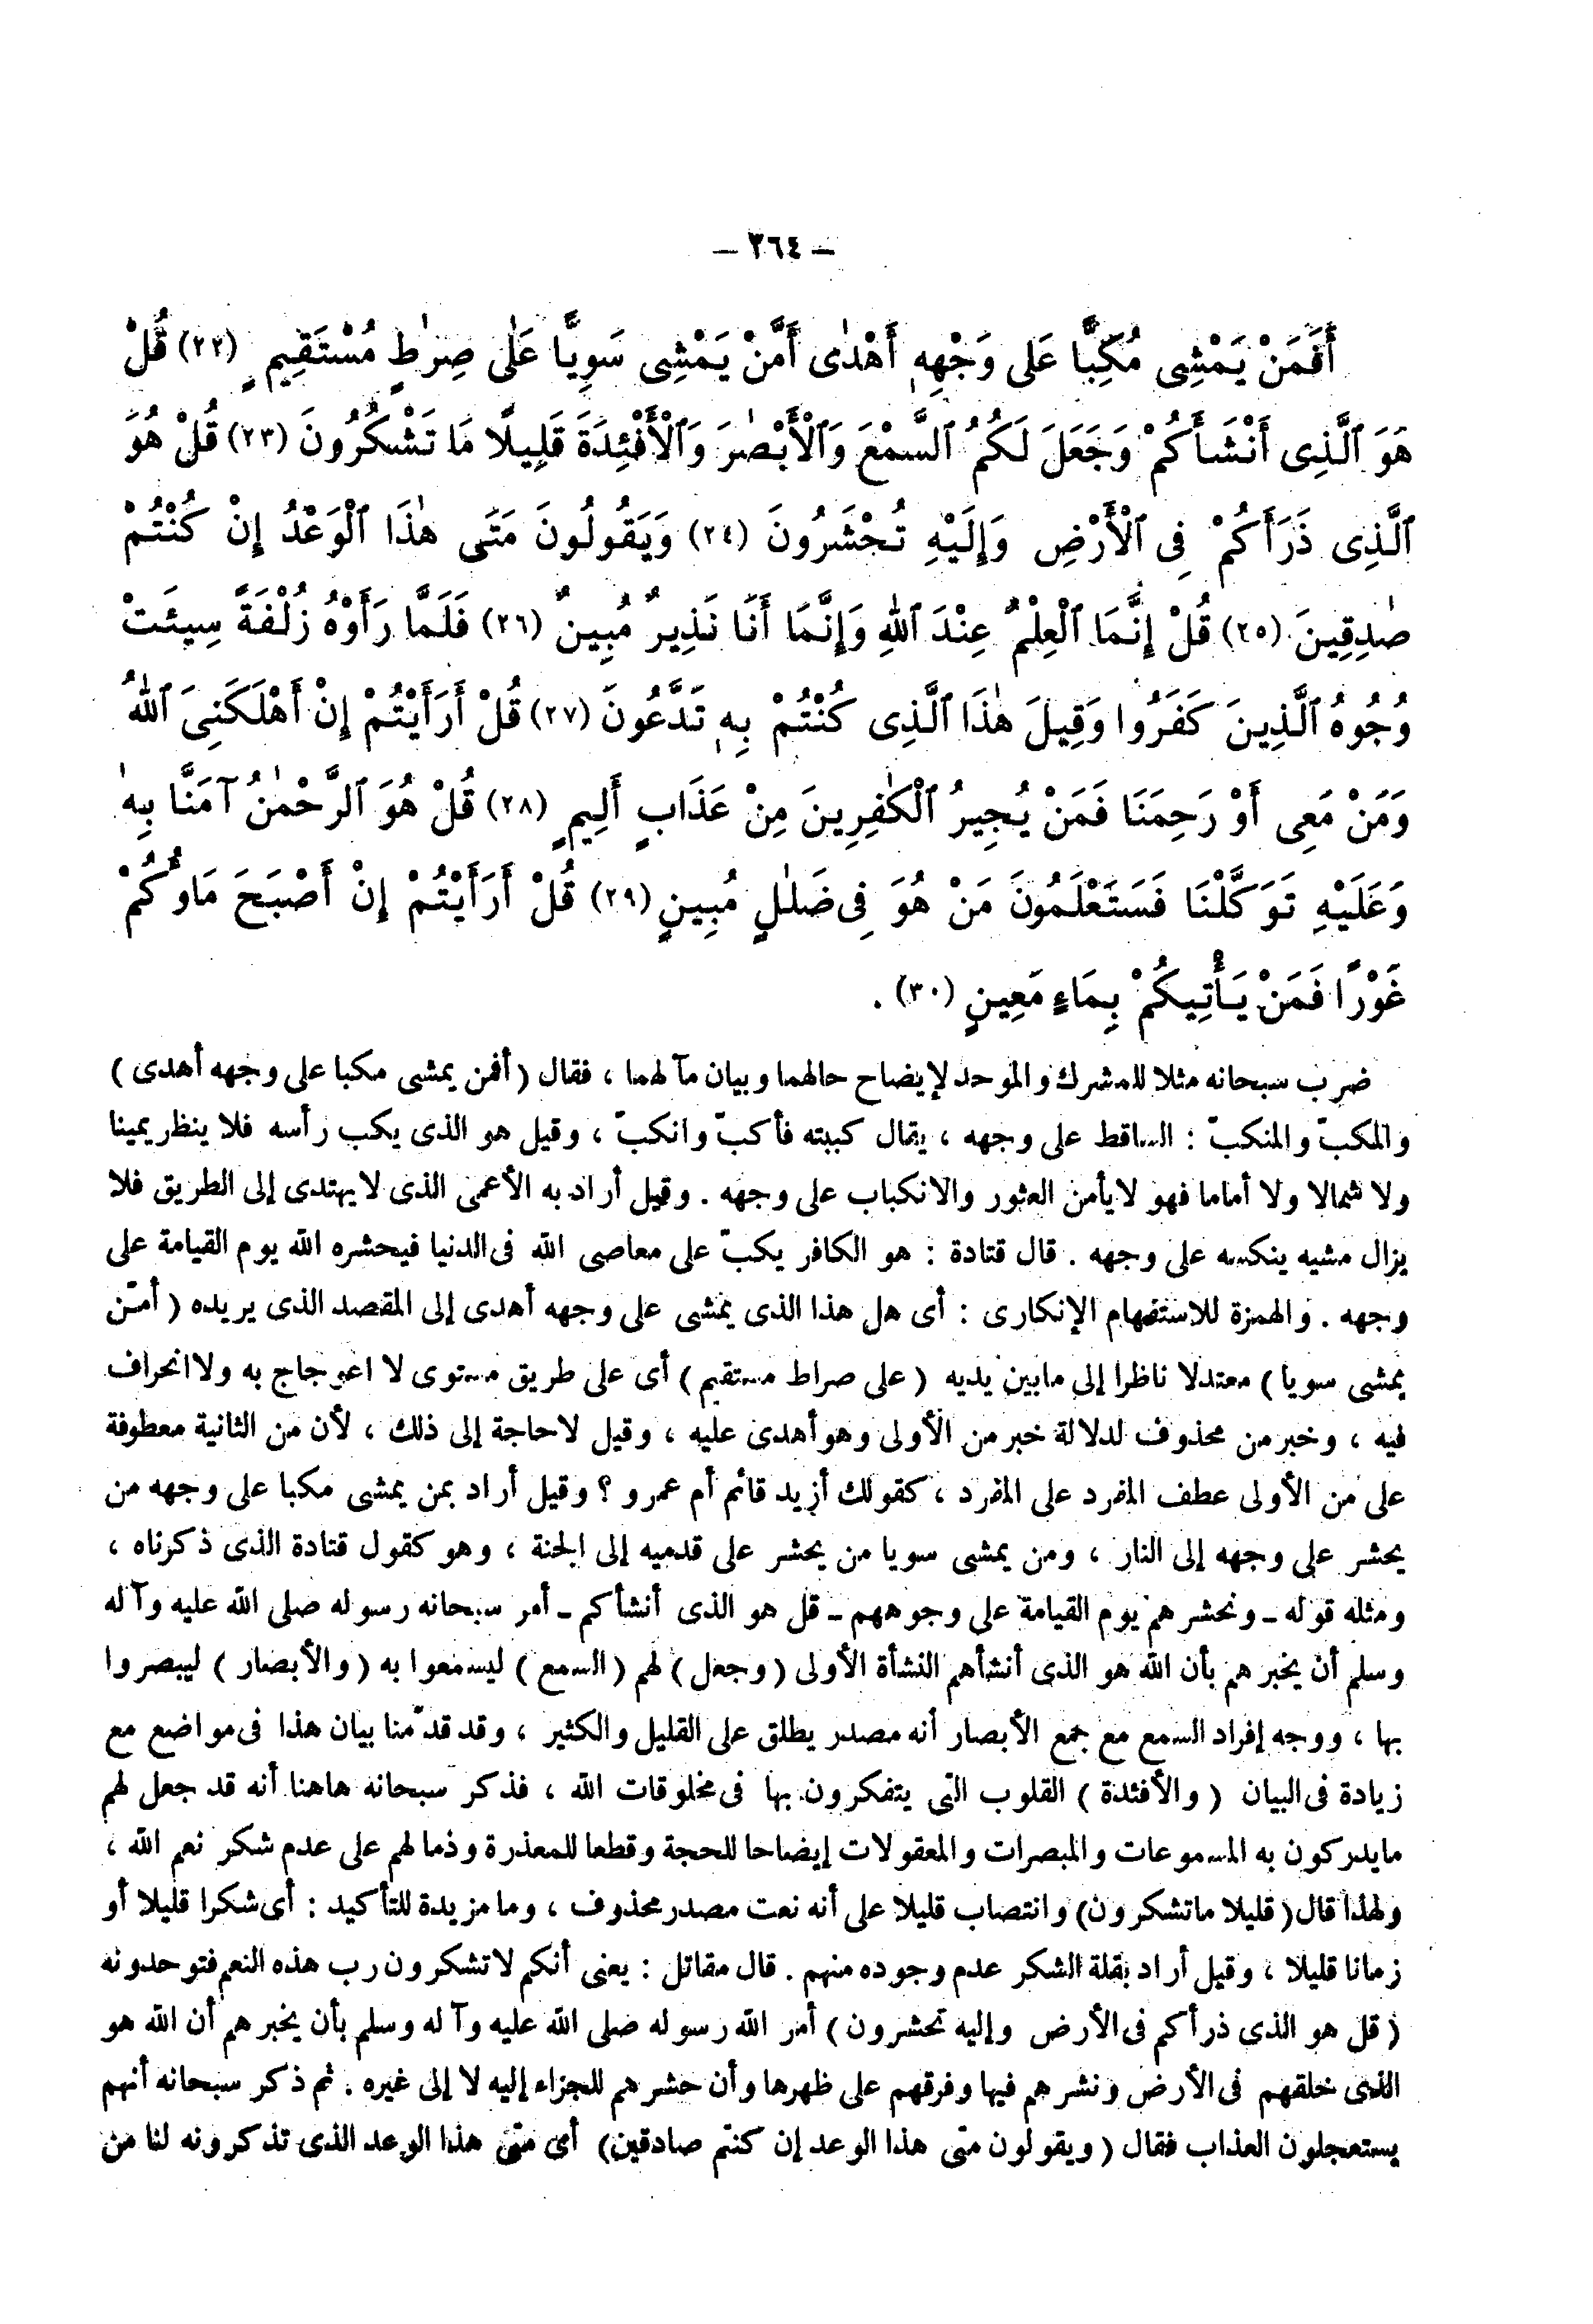 — ٣٦٤ —
أَفَمَنْ يَمْشِى مُكِبًّا عَلَى وَجْهِهِ أَهْدٰى أَمَّنْ يَمْشِى سَوِيًّا عَلٰى صِرٰطٍ مُسْتَقِيمٍ (٢٢) قُلْ
هُوَ ٱلَّذِى أَنْشَأَكُمْ وَجَعَلَ لَكُمُ ٱلسَّمْعَ وَٱلْأَبْصٰرَ وَٱلْأَفْئِدَةَ قَلِيلًا مَا تَشْكُرُونَ (٢٣) قُلْ هُوَ
ٱلَّذِى ذَرَأَكُمْ فِى ٱلْأَرْضِ وَإِلَيْهِ تُحْشَرُونَ (٢٤) وَيَقُولُونَ مَتَى هٰذَا ٱلْوَعْدُ إِنْ كُنْتُمْ
صٰدِقِينَ (٢٥) قُلْ إِنَّمَا ٱلْعِلْمُ عِنْدَ ٱللهِ وَإِنَّمَا أَنَا نَذِيرٌ مُبِينٌ (٢٦) فَلَمَّا رَأَوْهُ زُلْفَةً سِيئَتْ
وُجُوهُ ٱلَّذِينَ كَفَرُوا وَقِيلَ هٰذَا ٱلَّذِى كُنْتُمْ بِهِ تَدَّعُونَ (٢٧) قُلْ أَرَأَيْتُمْ إِنْ أَهْلَكَنِىَ ٱللهُ
وَمَنْ مَعِى أَوْ رَحِمَنَا فَمَنْ يُجِيرُ ٱلْكٰفِرِينَ مِنْ عَذَابٍ أَلِيمٍ (٢٨) قُلْ هُوَ ٱلرَّحْمٰنُ آمَنَّا بِهِ
وَعَلَيْهِ تَوَكَّلْنَا فَسَتَعْلَمُونَ مَنْ هُوَ فِى ضَلٰلٍ مُبِينٍ (٢٩) قُلْ أَرَأَيْتُمْ إِنْ أَصْبَحَ مَاؤُكُمْ
غَوْرًا فَمَنْ يَأْتِيكُمْ بِمَاءٍ مَعِينٍ (٣٠) .
ضرب سبحانه مثلا للمشرك والموحد لإيضاح حالهما وبيان مآلهما ، فقال (أفمن يمشى مكبا على وجهه أهدى)
والمكبّ والمنكبّ : الساقط على وجهه ، يقال كببته فأكبّ وانكبّ ، وقيل هو الذى يكب رأسه فلا ينظر يمينا
ولا شمالا ولا أماما فهو لا يأمن العثور والانكباب على وجهه . وقيل أراد به الأعمى الذى لا يهتدى إلى الطريق فلا
يزال مشيه ينكسه على وجهه . قال قتادة : هو الكافر يكبّ على معاصى الله فى الدنيا فيحشره الله يوم القيامة على
وجهه . والهمزة للاستفهام الإنكارى : أى هل هذا الذى يمشى على وجهه أهدى إلى المقصد الذى يريده (أمّن
يمشى سويا) معتدلا ناظرا إلى مابين يديه (على صراط مستقيم) أى على طريق مستوى لا اعوجاج به ولا انحراف
فيه ، وخبر من محذوف لدلالة خبر من الأولى وهو أهدى عليه ، وقيل لاحاجة إلى ذلك ، لأن من الثانية معطوفة
على من الأولى عطف المفرد على المفرد ، كقولك أزيد قائم أم عمرو ؟ وقيل أراد بمن يمشى مكبا على وجهه من
يحشر على وجهه إلى النار ، ومن يمشى سويا من يحشر على قدميه إلى الجنة ، وهو كقول قتادة الذى ذكرناه ،
ومثله قوله ـ ونحشرهم يوم القيامة على وجوههم ـ قل هو الذى أنشأكم ـ أمر سبحانه رسوله صلى الله عليه وآله
وسلم أن يخبرهم بأن الله هو الذى أنشأهم النشأة الأولى (وجعل) لهم (السمع) ليسمعوا به (والأبصار) ليبصروا
بها ، ووجه إفراد السمع مع جمع الأبصار أنه مصدر يطلق على القليل والكثير ، وقد قدّمنا بيان هذا فى مواضع مع
زيادة فى البيان (والأفئدة) القلوب التى يتفكرون بها فى مخلوقات الله ، فذكر سبحانه هاهنا أنه قد جعل لهم
مايدركون به المسموعات والمبصرات والمعقولات إيضاحا للحجة وقطعا للمعذرة وذما لهم على عدم شكر نعم الله ،
ولهذا قال (قليلا ماتشكرون) وانتصاب قليلا على أنه نعت مصدر محذوف ، وما مزيدة للتأكيد : أى شكرا قليلا أو
زمانا قليلا ، وقيل أراد بقلة الشكر عدم وجوده منهم . قال مقاتل : يعنى أنكم لاتشكرون رب هذه النعم فتوحدونه
(قل هو الذى ذرأكم فى الأرض وإليه تحشرون) أمر الله رسوله صلى الله عليه وآله وسلم بأن يخبرهم أن الله هو
الذى خلقهم فى الأرض ونشرهم فيها وفرقهم على ظهرها وأن حشرهم للجزاء إليه لا إلى غيره . ثم ذكر سبحانه أنهم
يستعجلون العذاب فقال (ويقولون متى هذا الوعد إن كنتم صادقين) أى متى هذا الوعد الذى تذكرونه لنا من